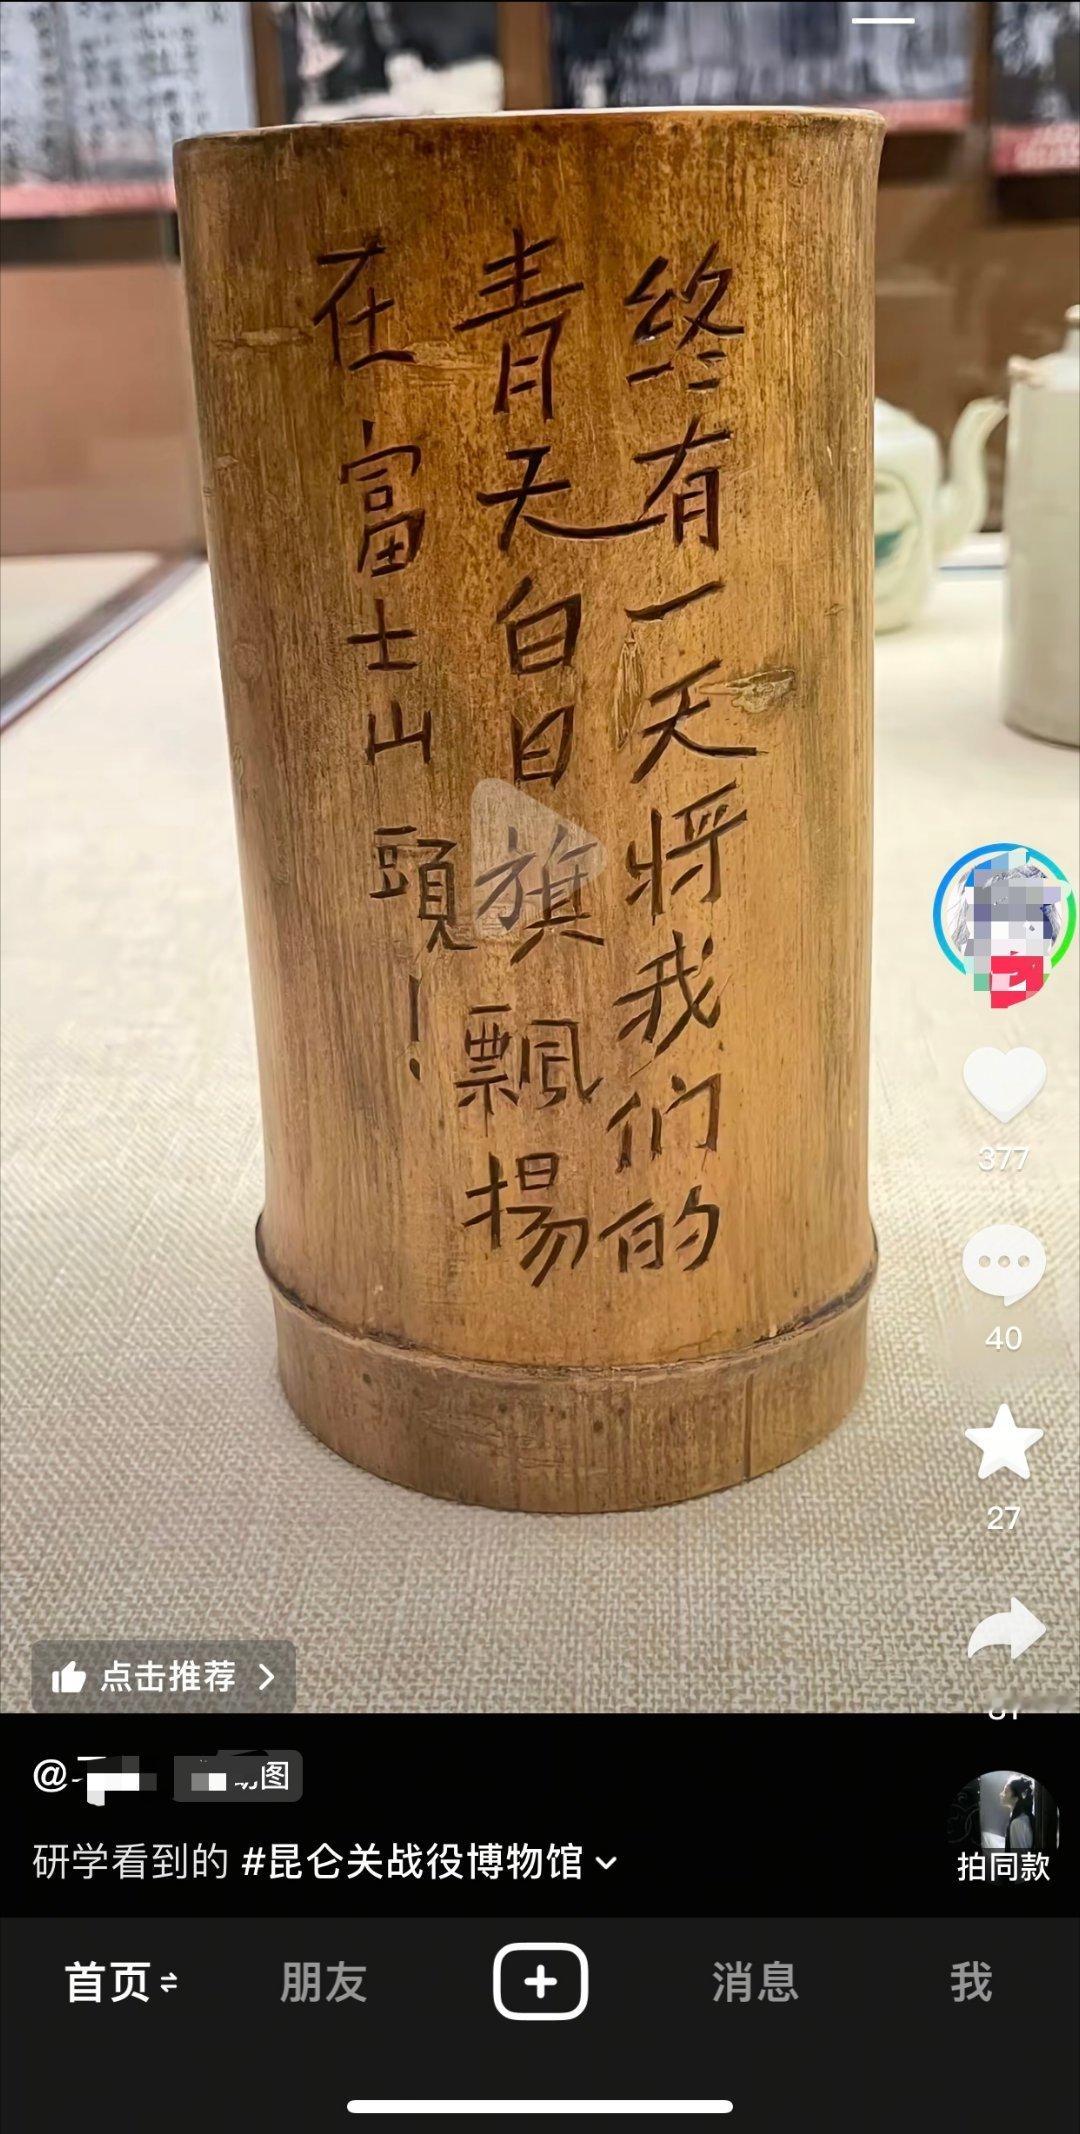 终有一天将我们的
青天白日旗飘揚
在富士山頭！
377
40
27
点击推荐
@
图
研学看到的 #昆仑关战役博物馆
拍同款
首页
朋友
消息
我